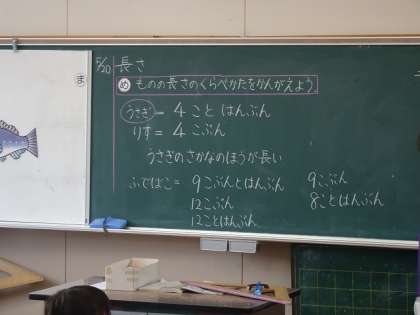 5/20 長さ
ま
め ものの長さのくらべかたをかんがえよう。
うさぎ = 4こと はんぶん
りす = 4こぶん
うさぎのさかなのほうが長い
ふでばこ = 9こぶんとはんぶん 9こぶん
12こぶん 8ことはんぶん
12ことはんぶん